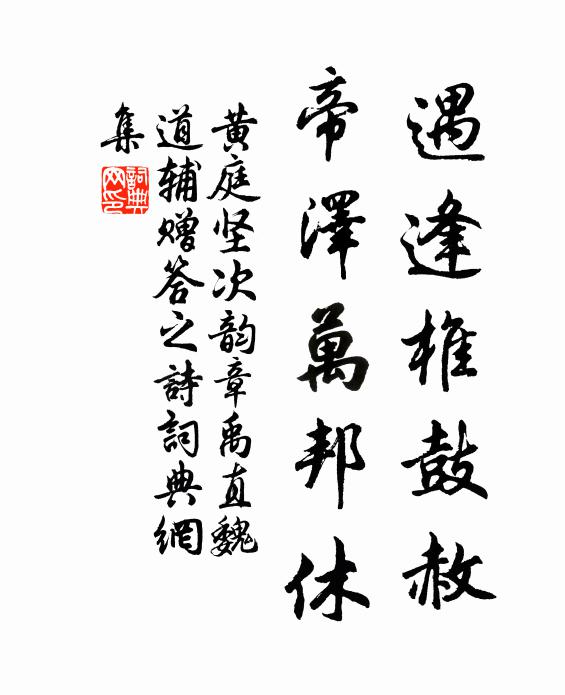 遇逢椎鼓赦
帝澤萬邦休
黄庭坚次韵章禹直魏
道辅赠答之詩詞典網
集
詞典网印